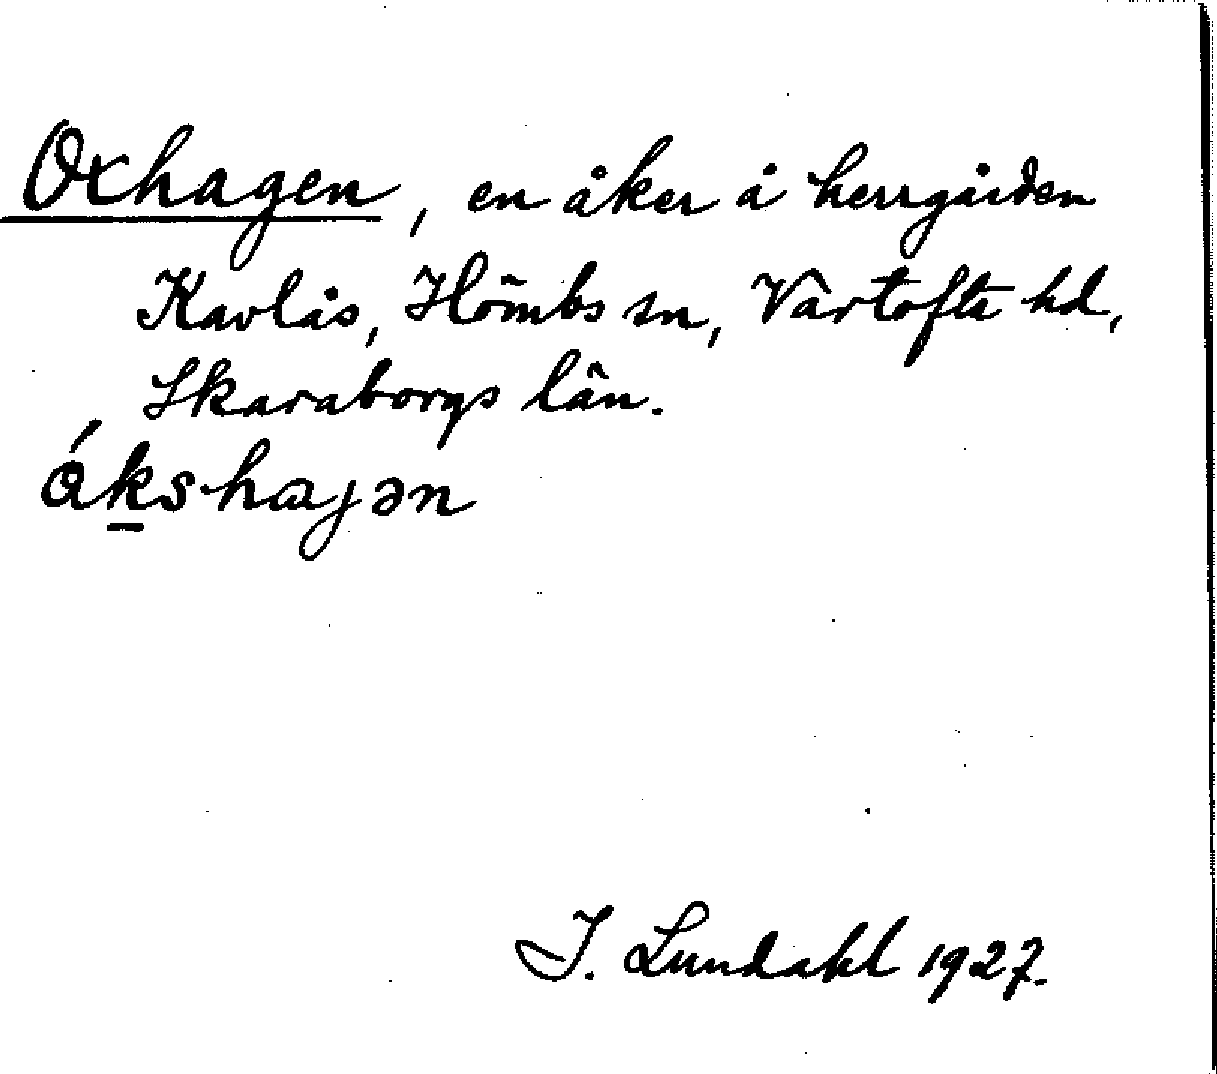 Oxhagen, en åker å herrgården
Kavlås, Hömbs sn, Vartofts hd,
Skaraborgs län.
ákshaɡən
I. Lundahl 1927.